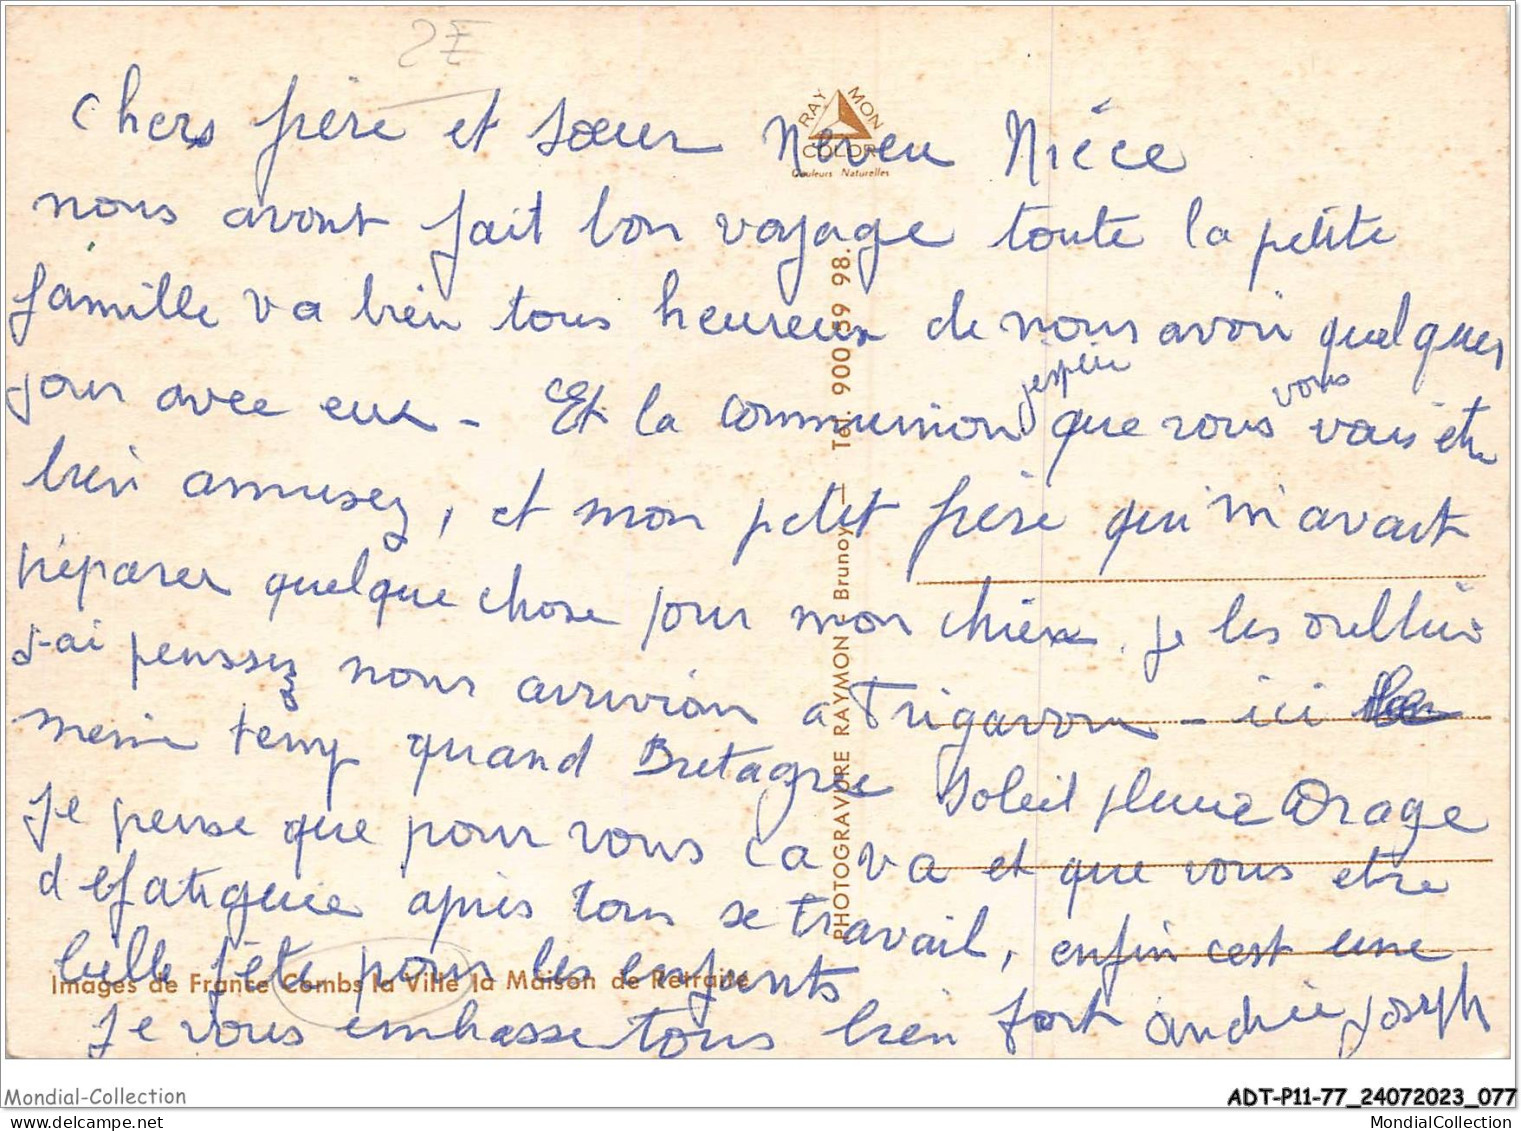 2E
RAYMON COLOR
Couleurs Naturelles
Chers frère et soeur Neveu Nièce
nous avont fait bon voyage toute la petite
famille va bien tous heureux de nous avoir quelques
jour avec eux - Et la communion j'espère que vous vous vais être
bien amusez, et mon petit frère qui m'avait
préparer quelque chose pour mon chien. je les oublier
J-ai penssez nous arrivion a Trigavou - ici
meme temp quand Bretagne Soleil pluie Orage
Je pense que pour vous ca va et que vous etre
defatiguée après tous se travail, enfin cest une
belle fête pour les enfants
Je vous embrasse tous bien fort andrée joseph
PHOTOGRAVURE RAYMON - Brunoy — Tél. 900 59 98.
Images de France Combs la Ville la Maison de Retraite
Mondial-Collection
ADT-P11-77_24072023_077
mondial-collection.com
MondialCollection.com